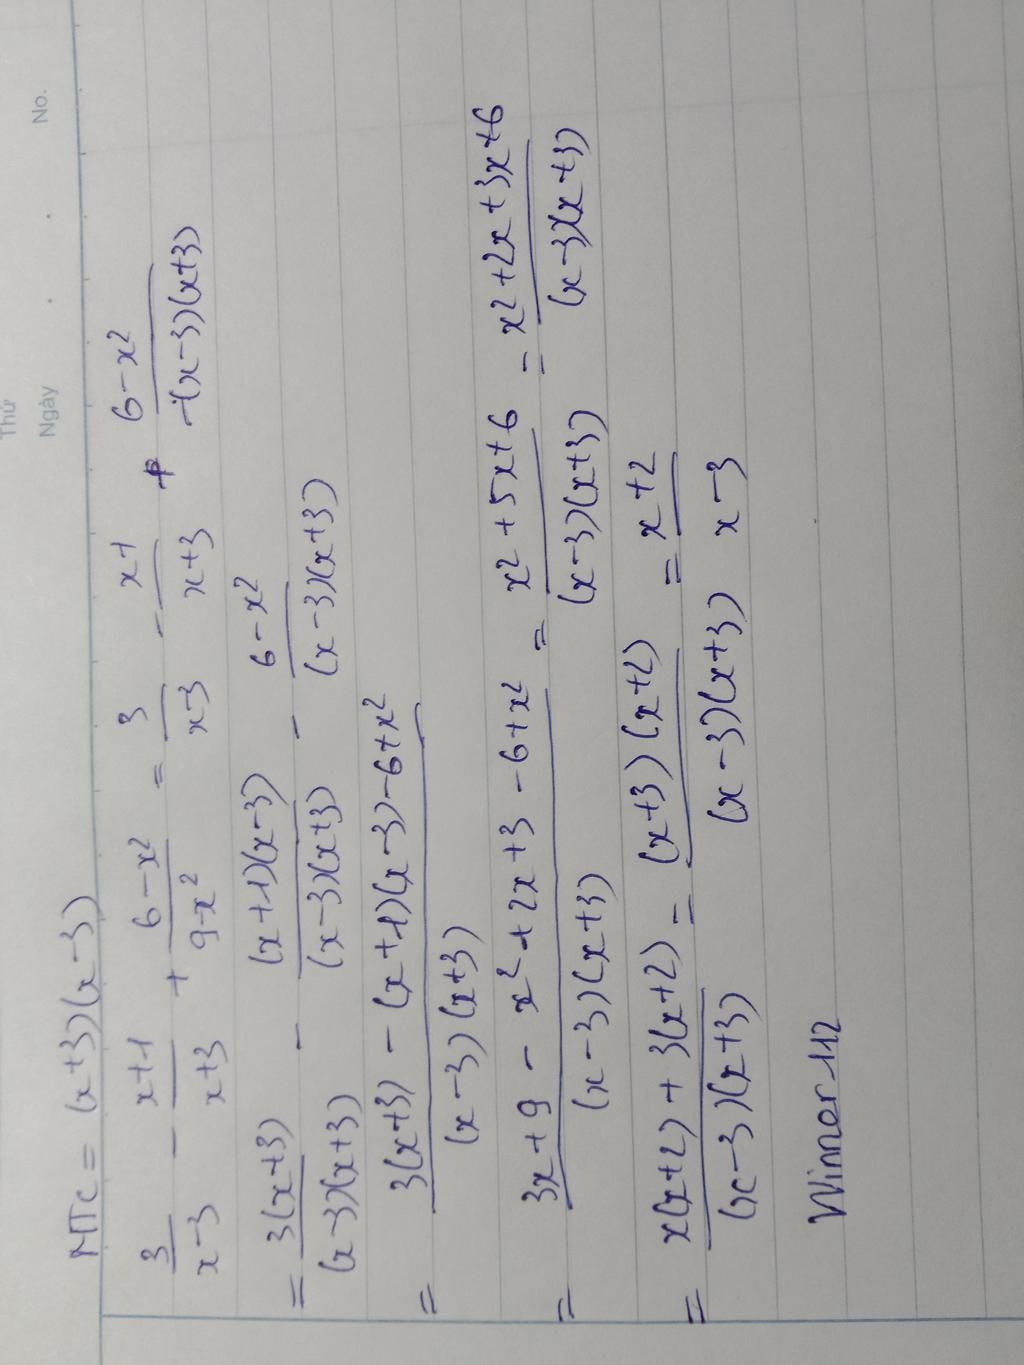 Thứ
Ngày . . No.
MTC = (x+3)(x-3)
3/(x-3) - (x+1)/(x+3) + (6-x²)/(9-x²) = 3/(x-3) - (x+1)/(x+3) + (6-x²)/(-(x-3)(x+3))
= 3(x+3)/((x-3)(x+3)) - (x+1)(x-3)/((x-3)(x+3)) - (6-x²)/((x-3)(x+3))
= (3(x+3) - (x+1)(x-3) - 6+x²)/((x-3)(x+3))
= (3x+9 - x²+2x+3 - 6+x²)/((x-3)(x+3)) = (x²+5x+6)/((x-3)(x+3)) = (x²+2x+3x+6)/((x-3)(x+3))
= (x(x+2) + 3(x+2))/((x-3)(x+3)) = (x+3)(x+2)/((x-3)(x+3)) = (x+2)/(x-3)
Winner112